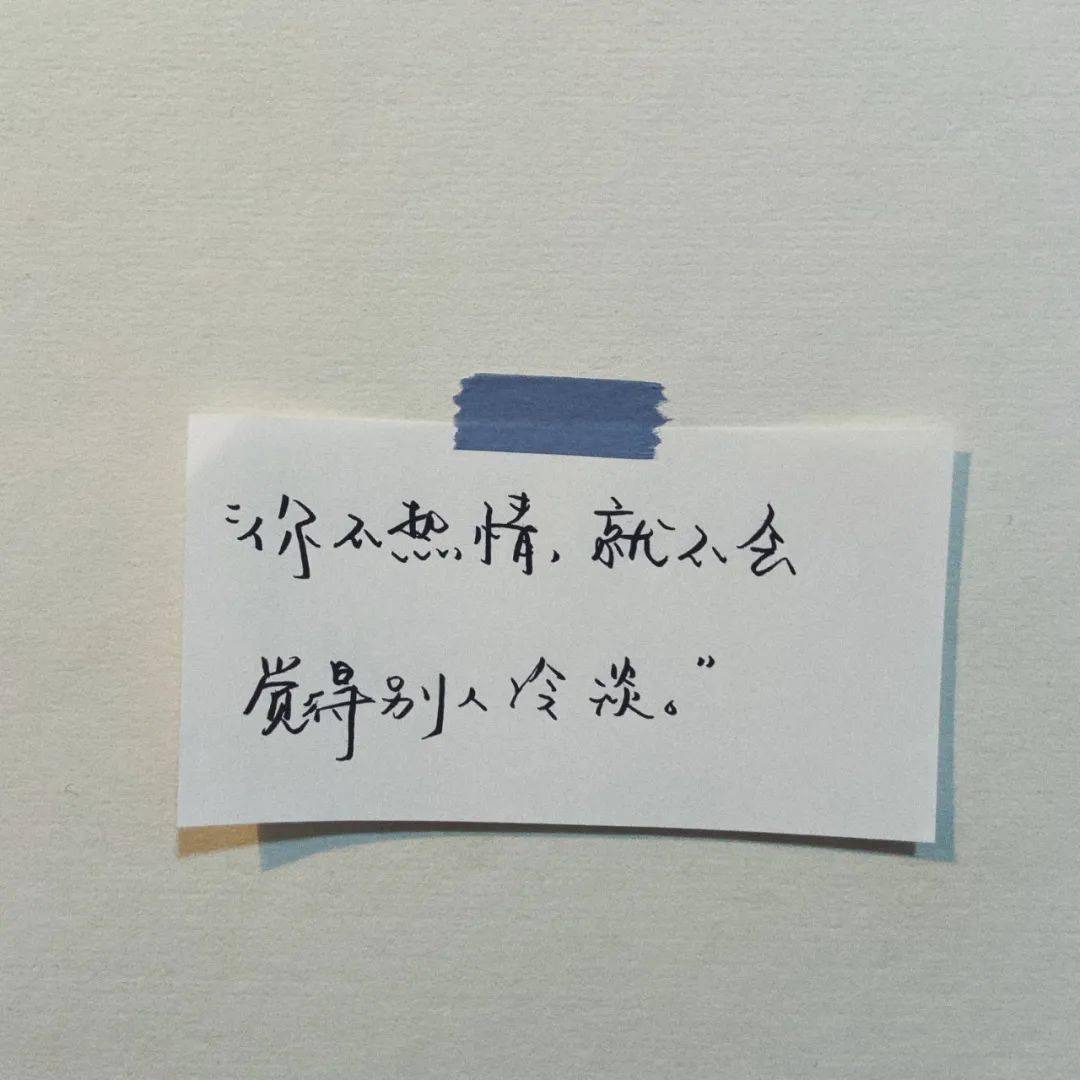 “你不热情，就不会
觉得别人冷淡。”